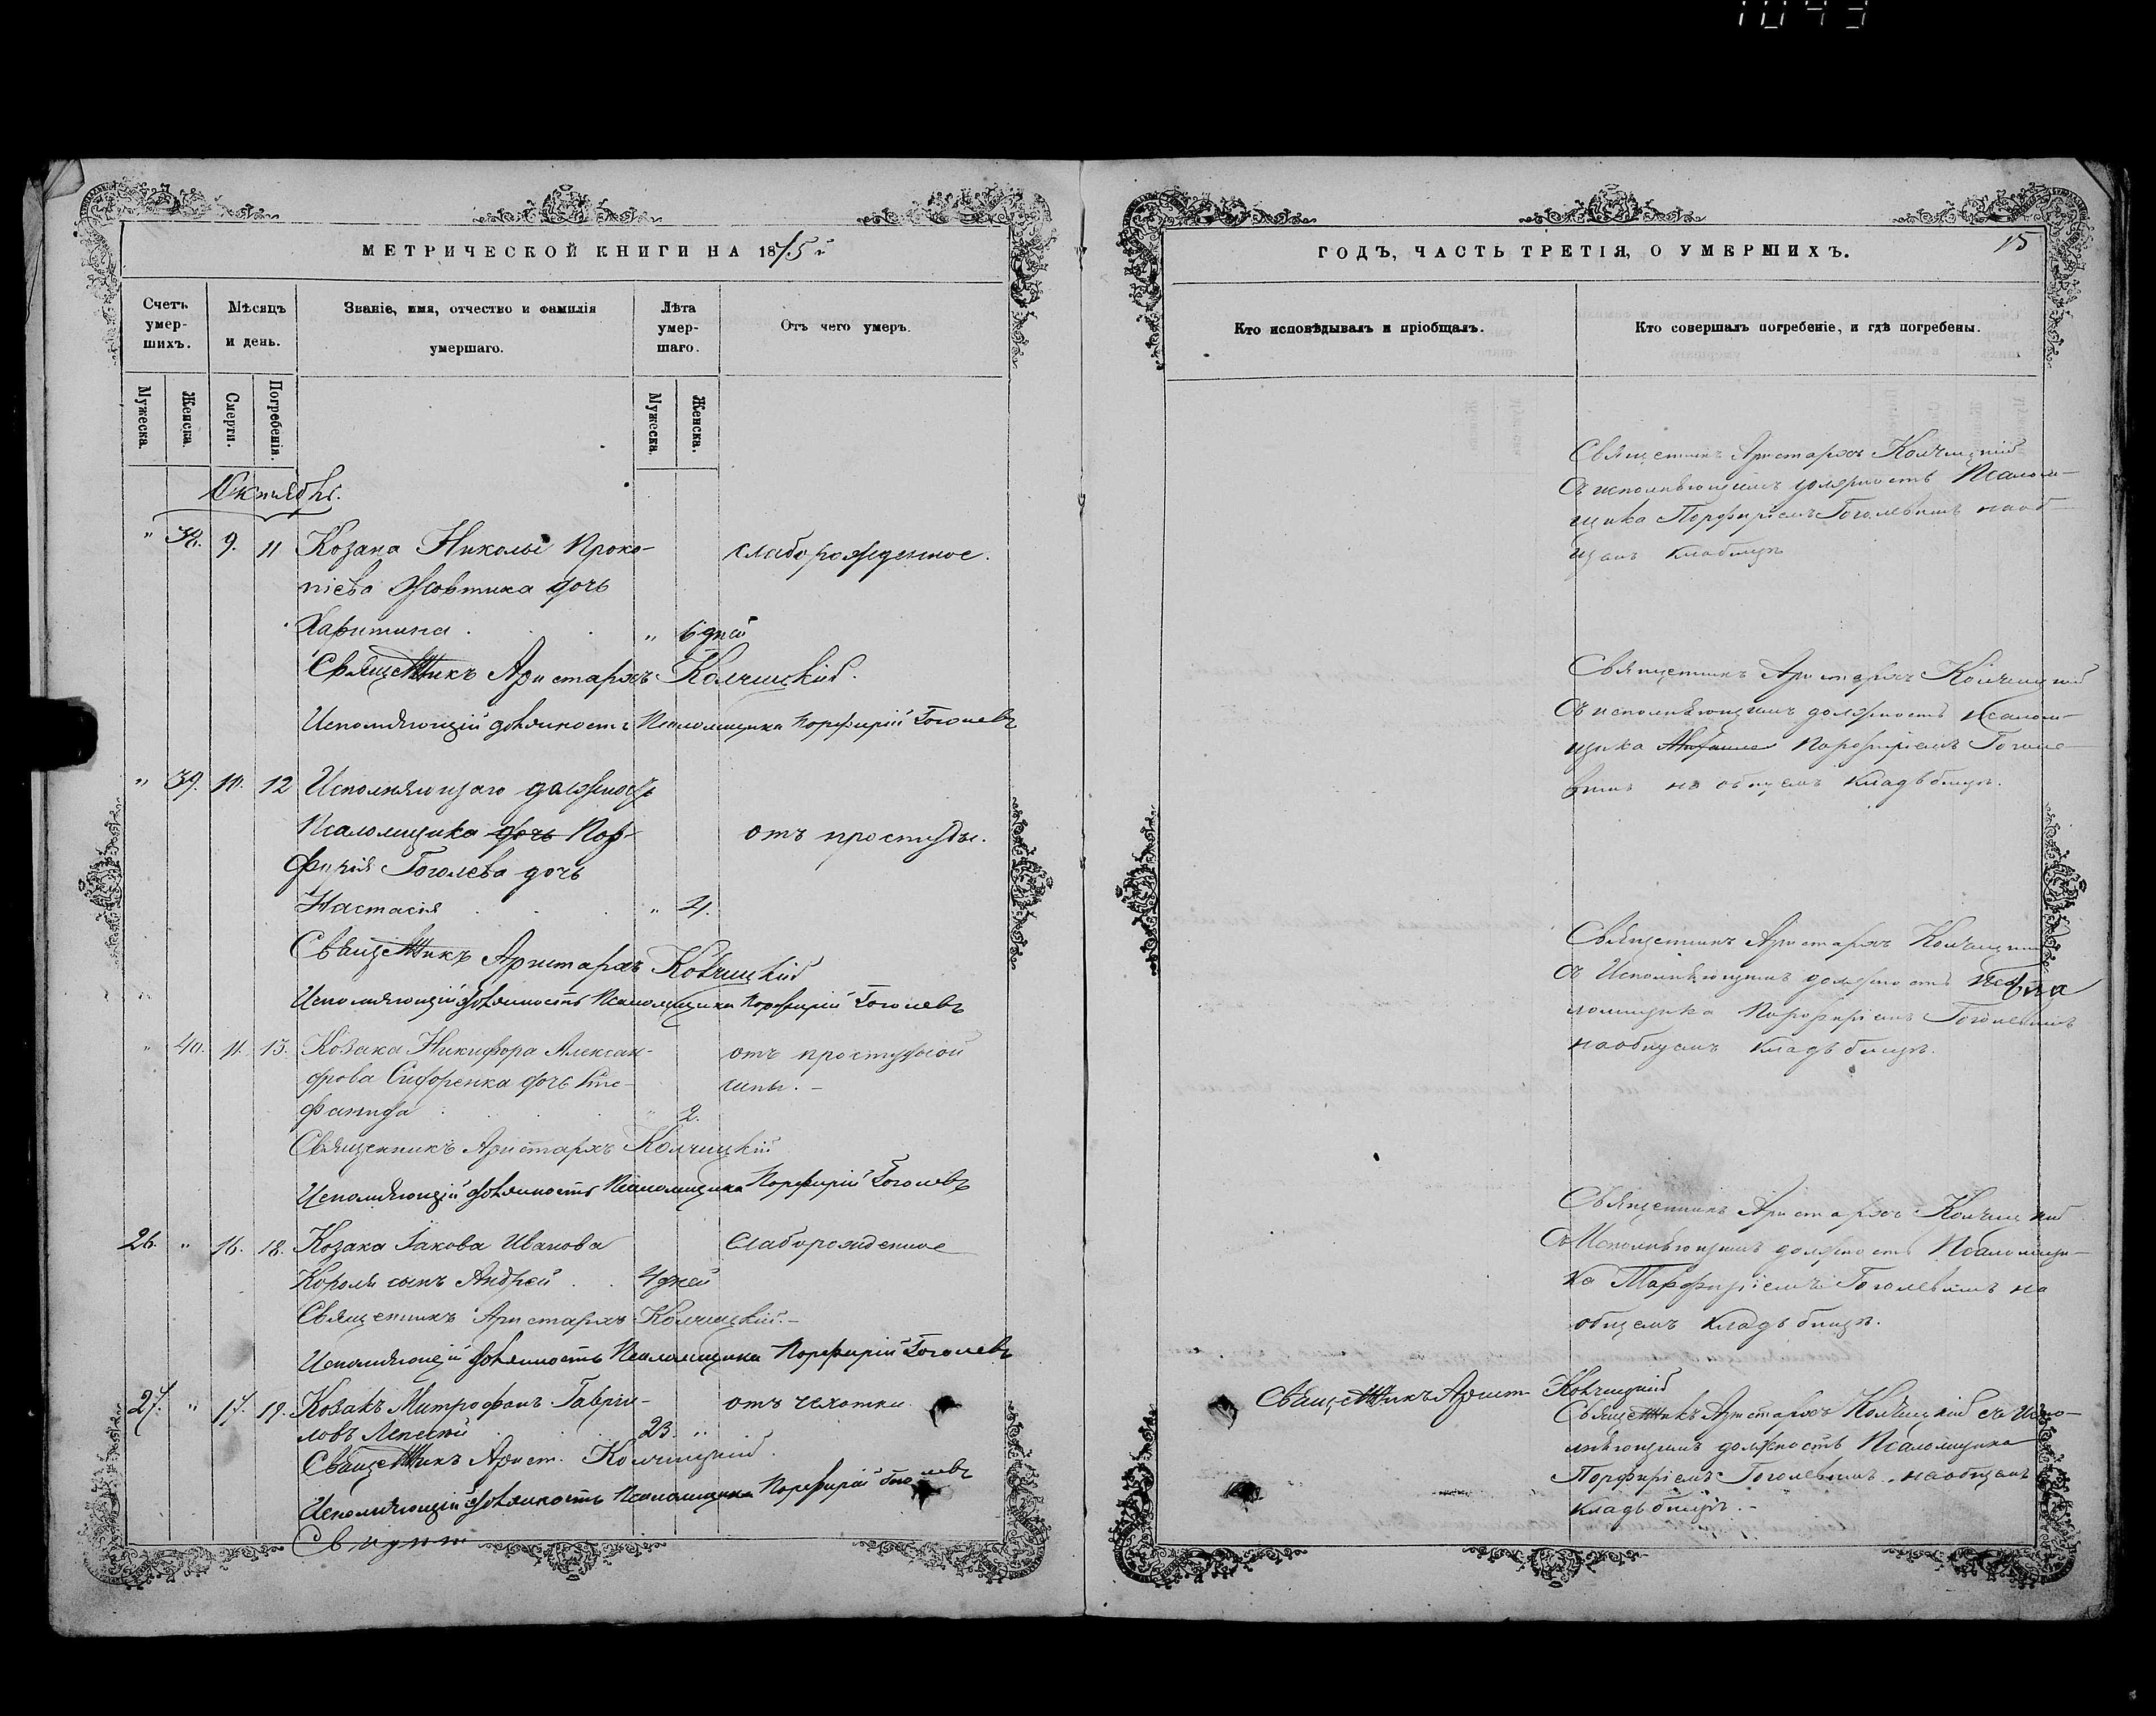 1043
МЕТРИЧЕСКОЙ КНИГИ НА 1875 й
Счетъ умер-шихъ.
Мѣсяцъ и день.
Званіе, имя, отчество и фамилія умершаго.
Лѣта умер-шаго.
Отъ чего умеръ.
Мужеска.
Женска.
Смерти.
Погребенія.
Мужеска
Женска.
Октябрь.
" 38. 9. 11 Козака Николы Проко- слаборожденное.
піева Жовтика дочь
Харитина . " 6 дней
Священникъ Аристархъ Колчицкій.
Исполняющій должность Псаломщика Порфирій Гоголевъ
" 39. 10. 12 Исполняющаго должность
Псаломщика дочь Пор- отъ простуды.
фирія Гоголева дочь
Настасія " 4.
Священникъ Аристархъ Колчицкій
Исполняющій должность Псаломщика Порфирій Гоголевъ
" 40. 11. 13. Козака Никифора Алексан- отъ простудной
дрова Сидоренка дочь Сте-
фанида " 2.
Священникъ Аристархъ Колчицкій
Исполняющій должность Псаломщика Порфирій Гоголевъ
26. " 16. 18. Козака Іакова Иванова Слаборожденное
Короля сынъ Андрей 4 дней
Священникъ Аристархъ Колчицкій.-
Исполняющій должность Псаломщика Порфирій Гоголевъ
27. " 17. 19. Козакъ Митрофанъ Гаври- отъ чахотки
ловъ 23. "
Священникъ Арист. Колчицкій.
Исполняющій должность Псаломщика Порфирій Гоголевъ
ГОДЪ, ЧАСТЬ ТРЕТІЯ, О УМЕРШИХЪ.
15
Кто исповѣдывалъ и пріобщалъ.
Кто совершалъ погребеніе, и гдѣ погребены.
Священникъ Аристархъ Колчицкій
съ исполняющимъ должность Псалом-
щика Порфиріемъ Гоголевымъ на об-
щемъ кладбищѣ
Священникъ Аристархъ Колчицкій
съ исполняющимъ должность псалом-
щика Порфиріемъ Гоголе-
вымъ на общемъ кладбищѣ.
Священникъ Аристархъ Колчицкій
съ Исполняющимъ должность Пса
ломщика Порфиріемъ Гоголевымъ
на общемъ кладбищѣ.
Священникъ Аристархъ Колчицкій
съ Исполняющимъ должность Псаломщи-
ка Парфиріемъ Гоголевымъ на
общемъ кладбищѣ.
Священникъ Арист Колчицкій
Священникъ Аристархъ Колчицкій съ Испо-
лняющимъ должность Псаломщика
Порфиріемъ Гоголевымъ на общемъ
кладбищѣ.-